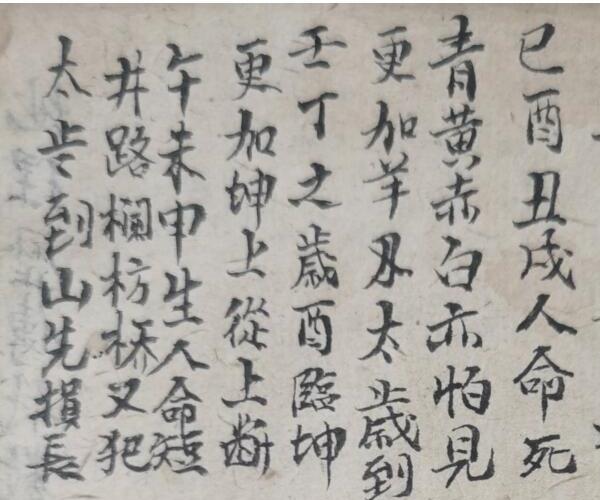 巳酉丑戌人命死
青黄赤白亦怕見
更加羊刃太歳到
壬丁之歳酉臨坤
更加坤上從上断
午未申生人命短
井路欄枋桥又犯
太岁到山先損長